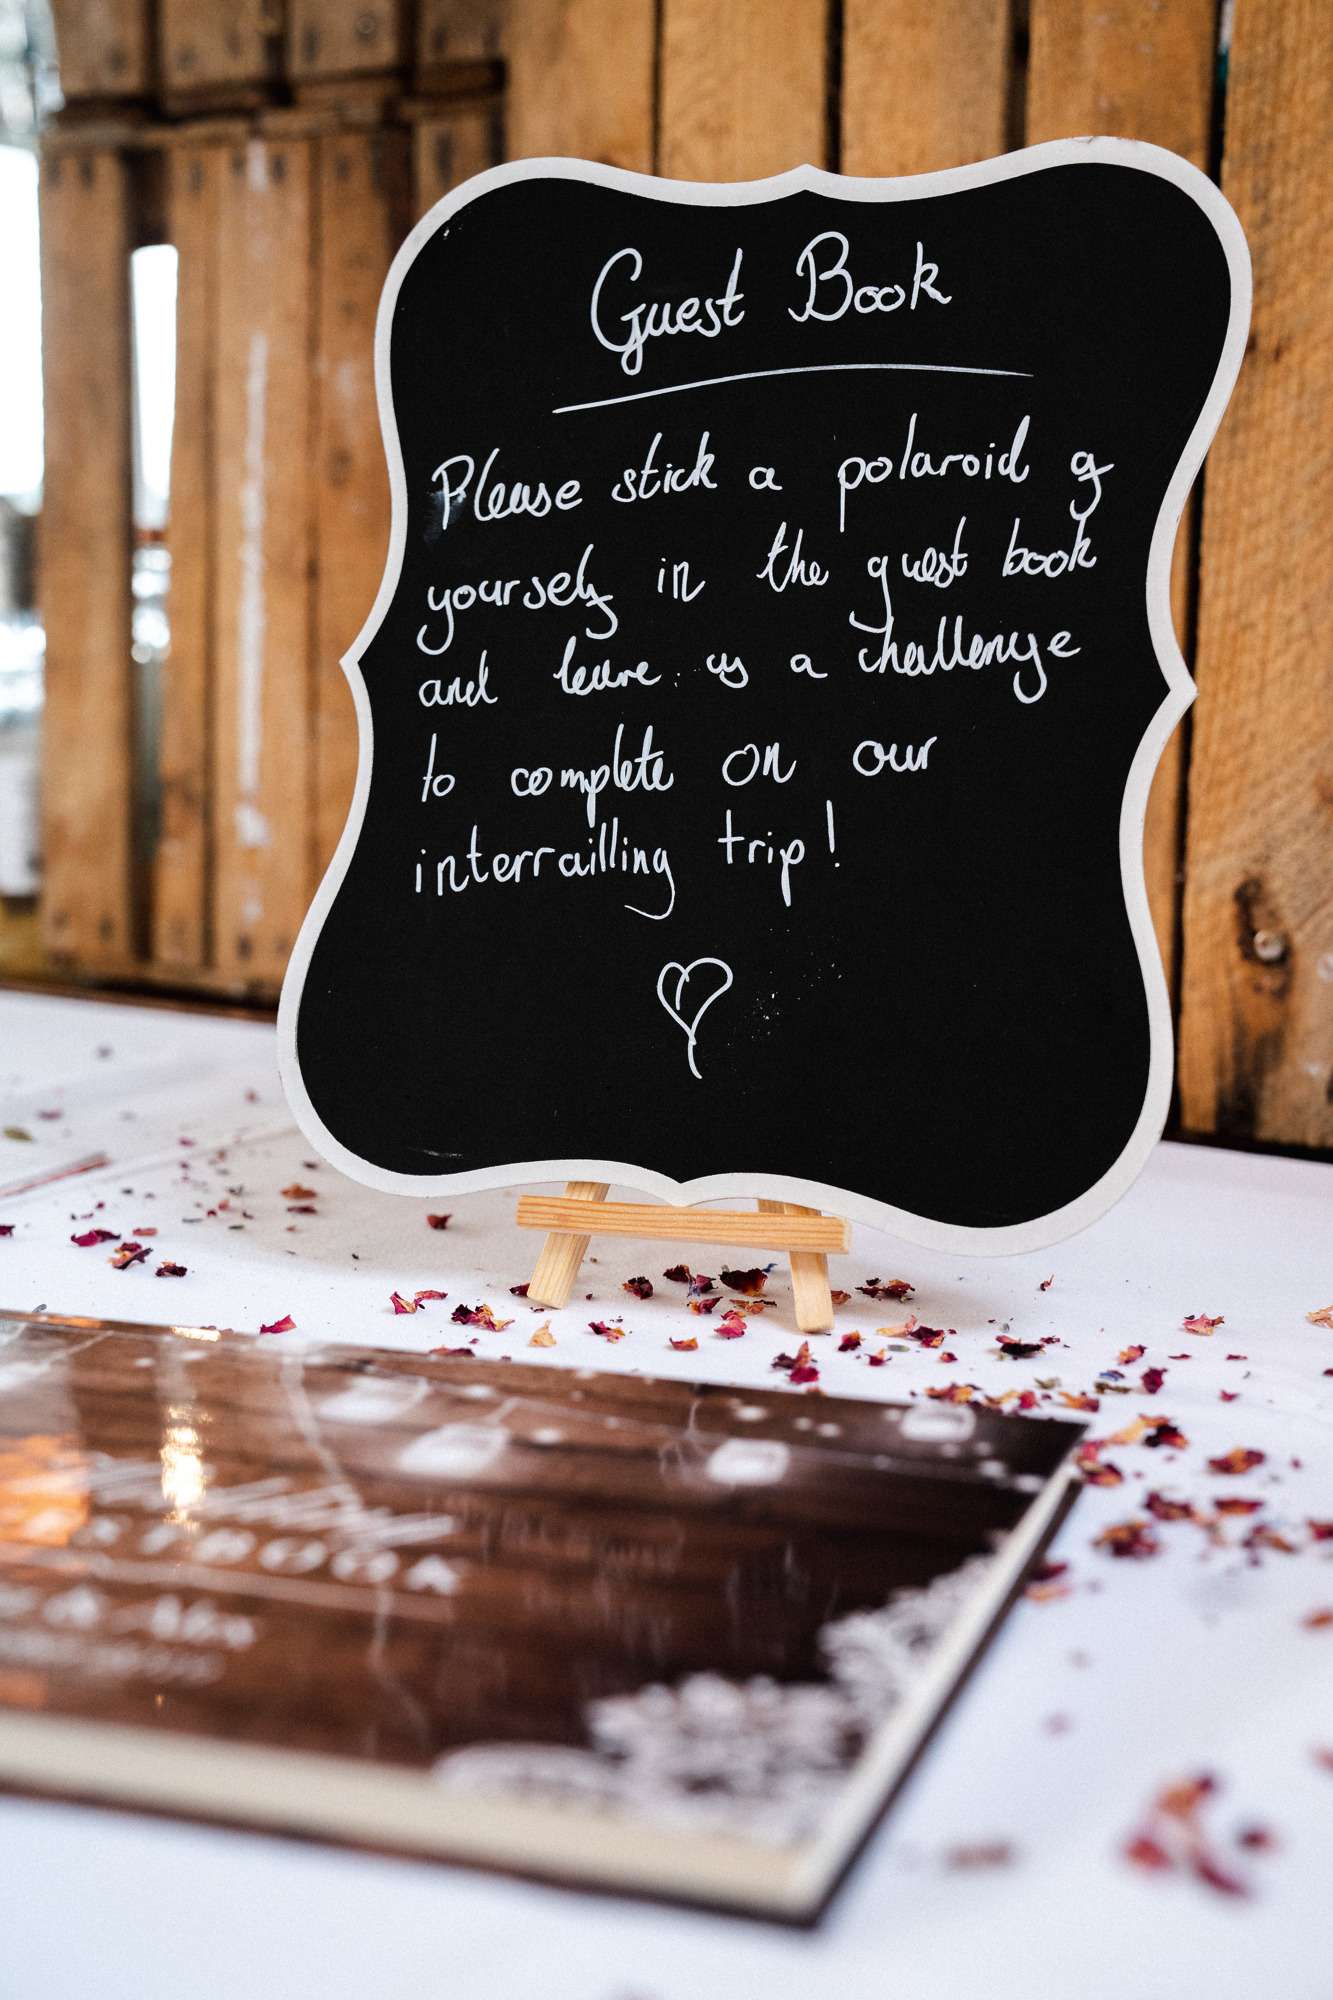 Guest Book
Please stick a polaroid of
yourself in the guest book
and leave us a challenge
to complete on our
interrailling trip!